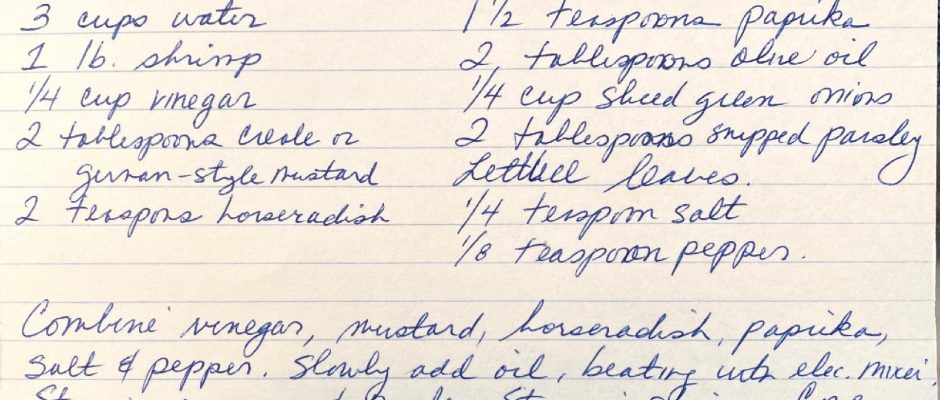 3 cups water
1 lb. shrimp
1/4 cup vinegar
2 tablespoons creole or
german-style mustard
2 teaspons horseradish
1 1/2 teaspoons paprika
2 tablespoons olive oil
1/4 cup sliced green onions
2 tablespoons snipped parsley
Lettuce leaves.
1/4 teaspoon salt
1/8 teaspoon pepper.
Combine vinegar, mustard, horseradish, paprika,
salt & pepper. Slowly add oil, beating with elec. mixer.